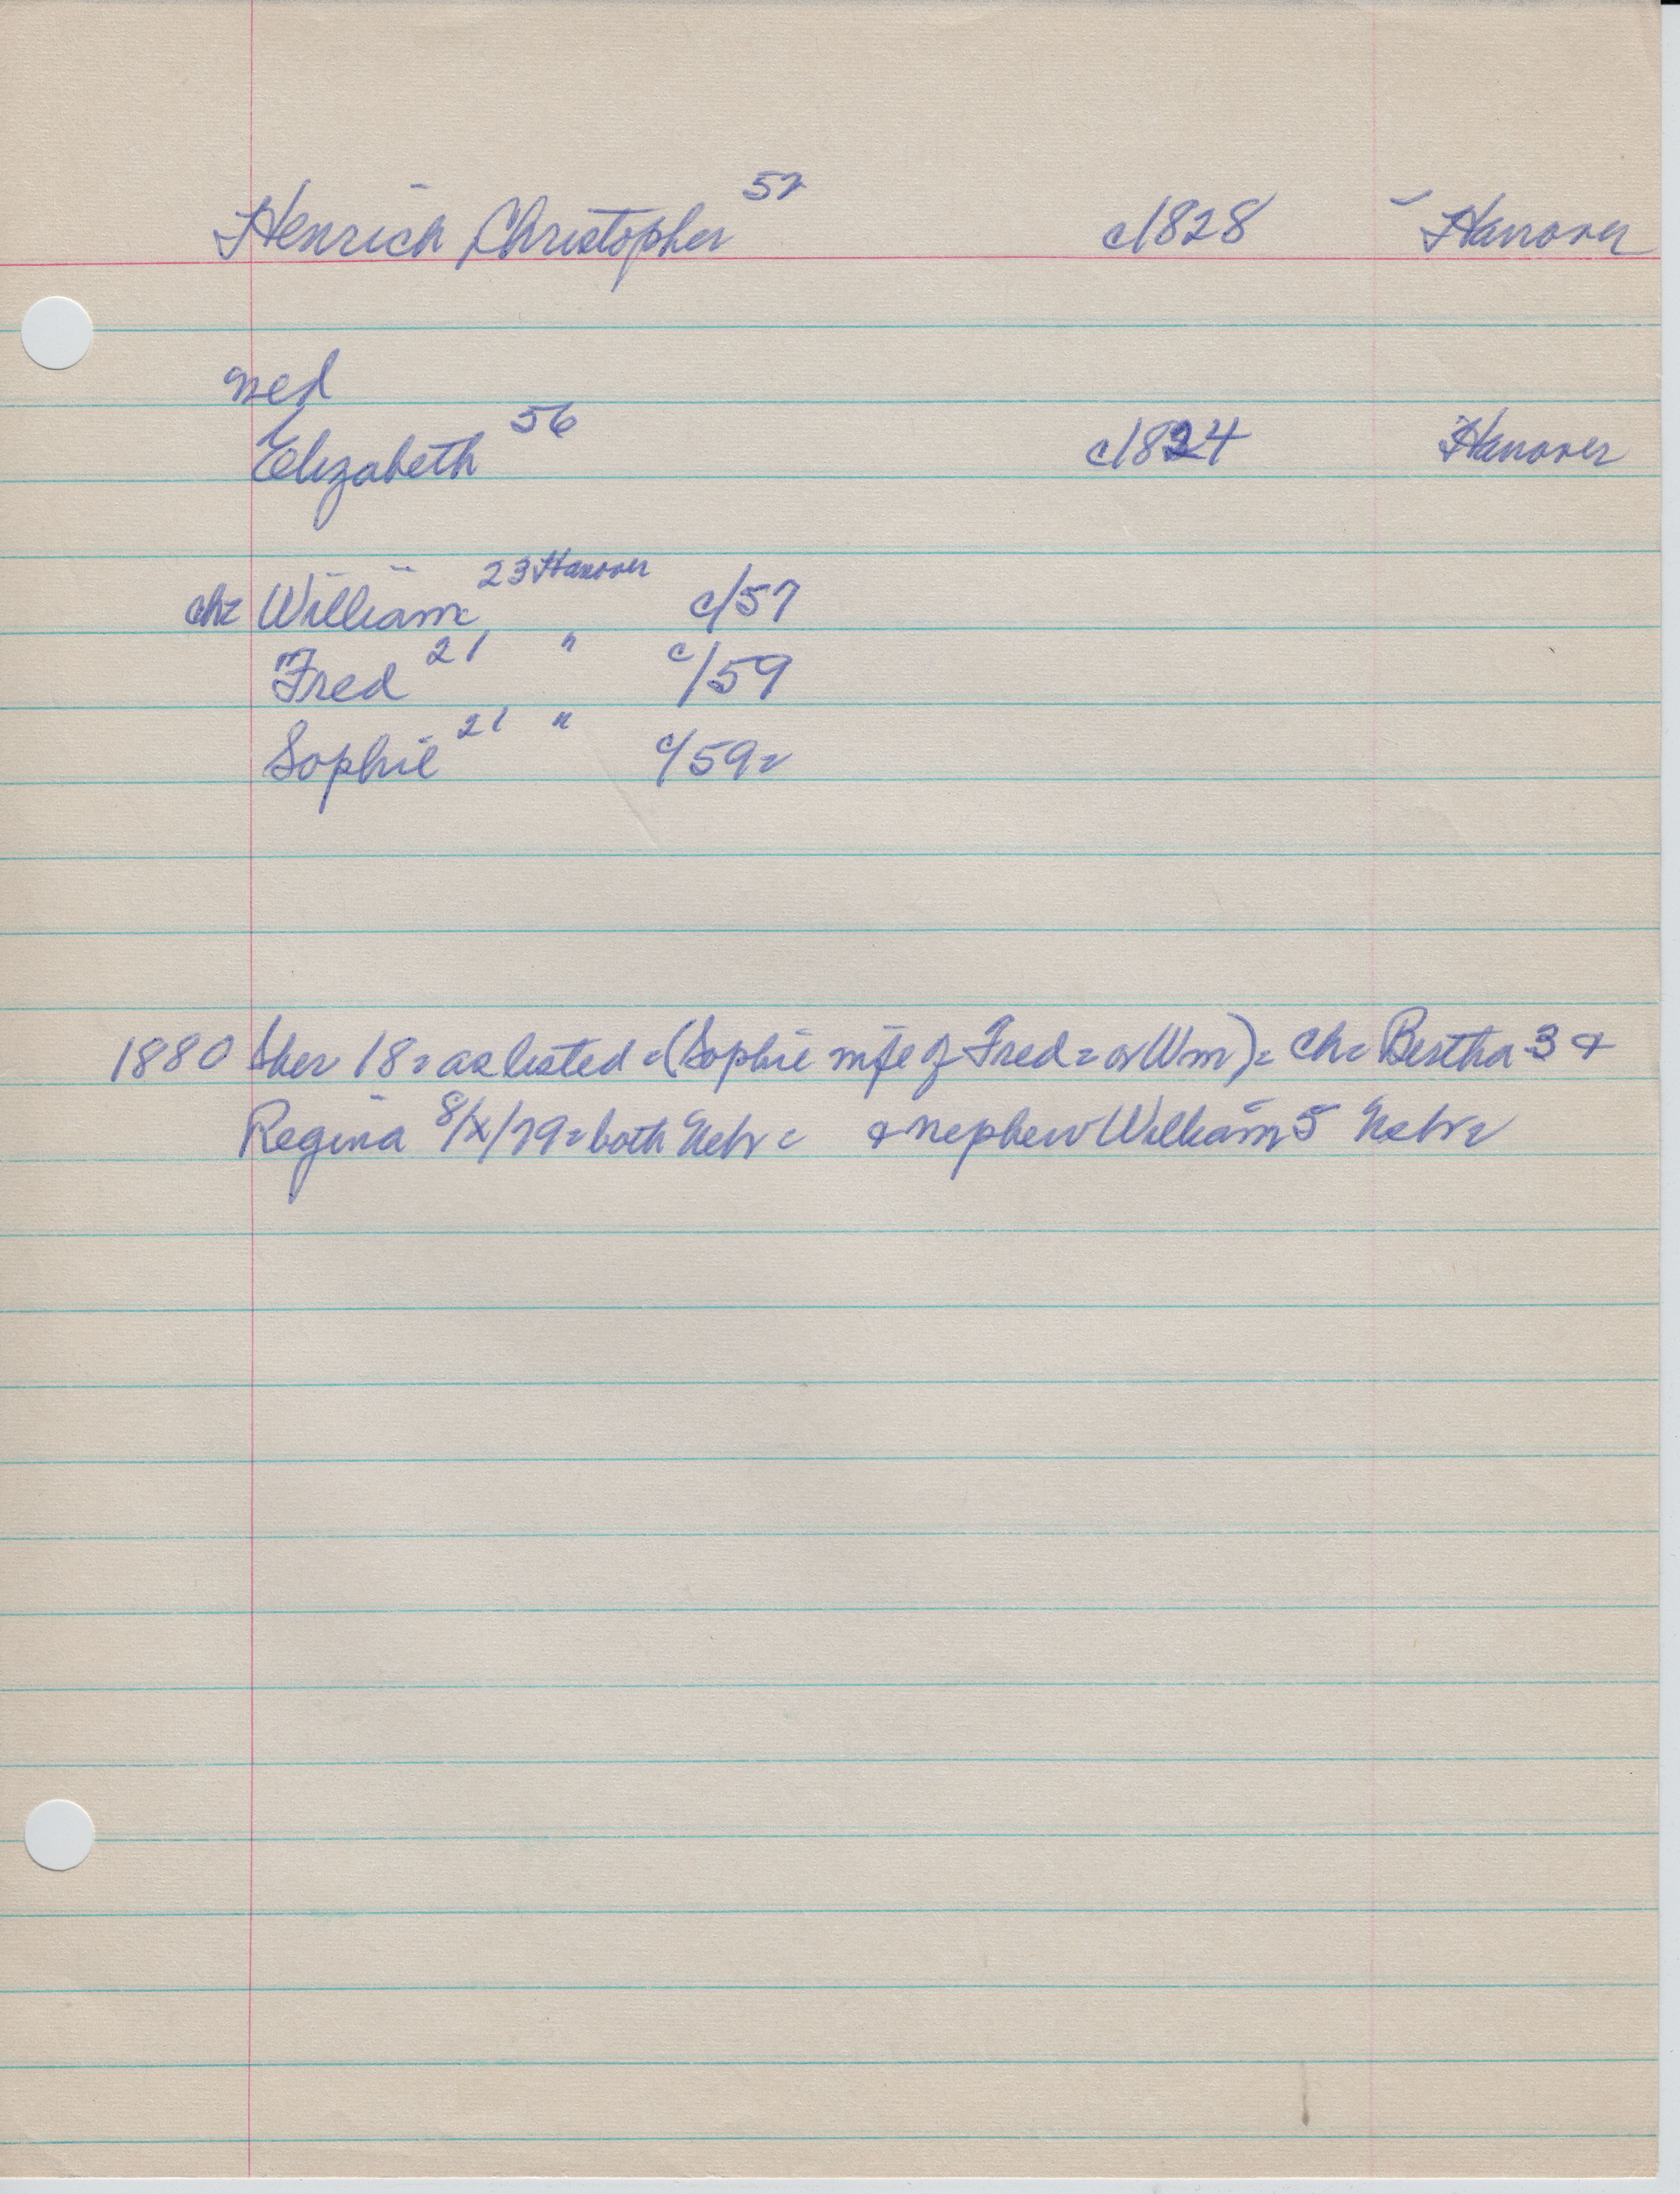 Henrich Christopher 52 c1828 Hanover
med
Elizabeth 56 c1824 Hanover
ch= William 23 Hanover c/57
Fred 21 " c/59
Sophie 21 " c/59=
1880 Sher 18= as listed = (Sophie wife of Fred = or Wm) = ch= Bertha 3 &
Regina 8/x/79 = both Nebr = & nephew William 5 Nebr=